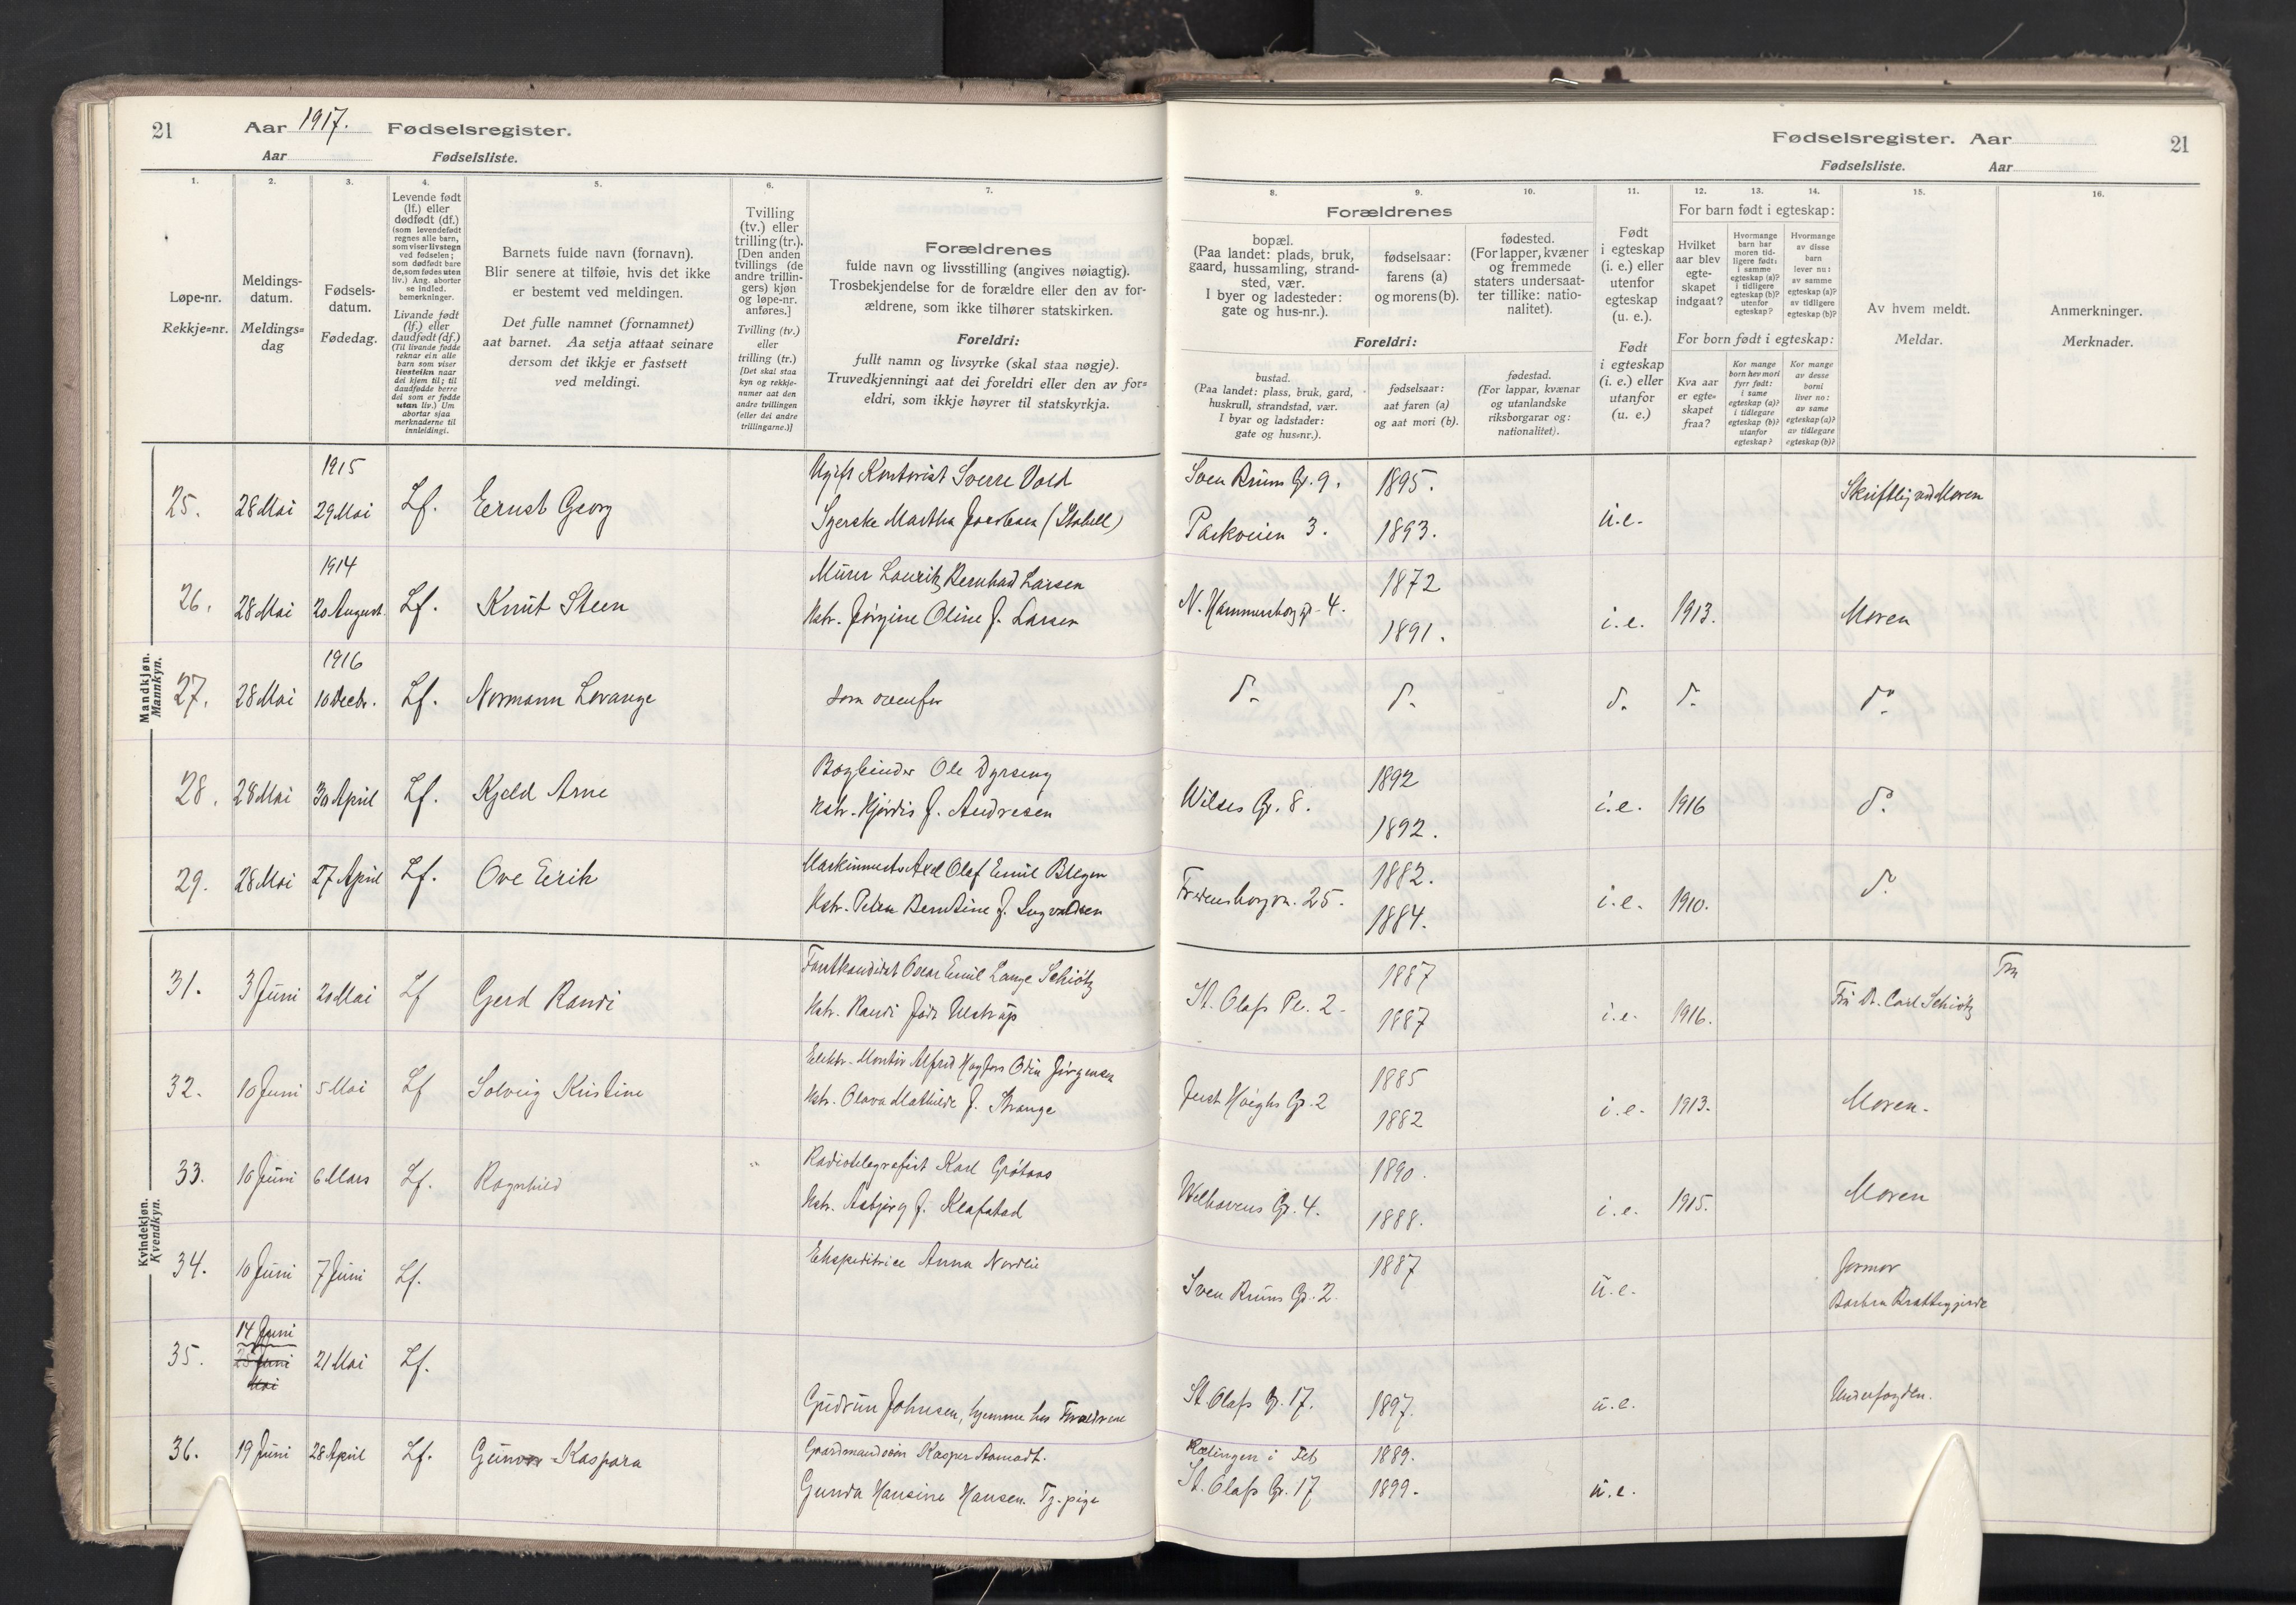 21 Aar 1917. Fødselsregister.
Aar Fødselsliste.
Fødselsregister. Aar 21
Fødselsliste. Aar
1.
Løpe-nr.
Rekkje=nr.
2.
Meldings-
datum.
Meldings=
dag
3.
Fødsels-
datum.
Fødedag.
4.
Levende født
(lf.) eller
dødfødt (df.)
(som levendefødt
regnes alle barn,
som viser livstegn
ved fødselen;
som dødfødt bare
de, som fødes uten
liv.) Ang. aborter
se indled.
bemerkninger.
Livande født
(lf.) eller
daudfødt (df.)
(Til livande fødde
reknar ein alle
barn som viser
livsteikn naar
dei kjem til; til
daudfødde berre
dei som er fødde
utan liv.) Um
abortar sjaa
merknaderne til
innleidingi.
5.
Barnets fulde navn (fornavn).
Blir senere at tilføie, hvis det ikke
er bestemt ved meldingen.
Det fulle namnet (fornamnet)
aat barnet. Aa setja attaat seinare
dersom det ikkje er fastsett
ved meldingi.
6.
Tvilling
(tv.) eller
trilling (tr.).
[Den anden
tvillings (de
andre trillin-
gers) kjøn
og løpe-nr.
anføres.]
Tvilling (tv.)
eller
trilling (tr.)
[Det skal staa
kyn og rekkje-
numer aat den
andre tvillingen
(eller dei andre
trillingarne.)]
7.
Forældrenes
fulde navn og livsstilling (angives nøiagtig).
Trosbekjendelse for de forældre eller den av for-
ældrene, som ikke tilhører statskirken.
Foreldri:
fullt namn og livsyrke (skal staa nøgje).
Truvedkjenningi aat dei foreldri eller den av for=
eldri, som ikkje høyrer til statskyrkja.
Forældrenes
8.
bopæl.
(Paa landet: plads, bruk,
gaard, hussamling, strand-
sted, vær.
I byer og ladesteder:
gate og hus-nr.).
9.
fødselsaar:
farens (a)
og morens (b).
10.
fødested.
(For lapper, kvæner
og fremmede
staters undersaat-
ter tillike: natio-
nalitet).
Foreldri:
bustad.
(Paa landet: plass, bruk, gard,
huskrull, strandstad, vær.
I byar og ladstader:
gate og hus=nr.).
fødselsaar:
aat faren (a)
og aat mori (b).
fødestad.
(For lappar, kvænar
og utanlandske
riksborgarar og:
nationalitet).
11.
Født
i egteskap
(i. e.) eller
utenfor
egteskap
(u. e.).
Født
i egteskap
(i. e.) eller
utanfor
(u. e.)
12. 13. 14.
For barn født i egteskap:
Hvilket
aar blev
egte-
skapet
indgaat?
Hvormange
barn har
moren tid-
ligere født:
i samme
egteskap (a)?
i tidligere
egteskap (b)?
utenfor
egteskap?
Hvormange
av disse
barn
lever nu:
av samme
egteskap (a)?
av tidligere
egteskap (b)?
For born født i egteskap:
Kva aar
er egte=
skapet
fraa?
Kor mange
born hev mori
fyrr født:
i same
egteskap (a)?
i tidlegare
egteskap (b)?
utanfor
egteskap?
Kor mange
av desse
borni
liver no:
av same
egteskap (a)?
av tidlegare
egteskap (b)?
15.
Av hvem meldt.
Meldar.
16.
Anmerkninger.
Merknader.
Mandkjøn.
Mannkyn.
1915
25. 28 Mai 29 Mai Lf. Ernst Georg Ugift Kontorist Sverre Vold Sven Bruns Gt. 9. 1895. u.e. Skriftlig ved Moren
Syerske Martha Jacobsen (Stabell) Parkveien 3. 1893.
1914
26. 28 Mai 20 August. Lf. Knut Steen Murer Lauritz Bernhard Larsen N. Hammersborg gt. 4. 1872 i.e. 1913. Moren
Hstr. Jørgine Oline f. Larsen 1891.
1916
27. 28 Mai 10 Decbr. Lf. Normann Levange som ovenfor do. do. do. do. do.
28. 28 Mai 30 April Lf. Kjeld Arne Bogbinder Ole Dyrseng Wilses Gt. 8. 1892 i.e. 1916 do.
Hstr. Hjørdis f. Andresen 1892.
29. 28 Mai 27 April Lf. Ove Eirik Maskinmester Axel Olaf Emil Blegen Fredensborgvn. 25. 1882. i.e. 1910. do.
Hstr. Petra Berntine f. Ingvaldsen 1884.
Kvindekjøn.
Kvendkyn.
31. 3 Juni 20 Mai Lf Gerd Randi Forstkandidat Oscar Emil Lange Schiøtz St. Olafs Pl. 2. 1887 i.e. 1916. Fru Dr. Carl Schiøtz Fru
Hstr. Randi født Ulstrup 1887
32. 10 Juni 5 Mai Lf Solveig Kristine Elektr. Montør Alfred Hagfors Odin Jørgensen Just Høighs Gt. 2 1885 i.e. 1913. Moren.
Hstr. Olava Mathilde f. Strange 1882
33. 10 Juni 6 Mars Lf. Ragnhild " Radiotelegrafist Karl Grøtaas Welhavens Gt. 4. 1890. i.e. 1915. Moren
Hstr. Asbjørg f. Klafstad 1888.
34. 10 Juni 7 Juni Lf. Ekspeditrice Anna Nordlie Sven Bruns Gt. 2. 1887 u.e. Jormor
Barbra Brattegjerde
14 Juni
35. 25 Juni 21 Mai Lf.
Mai
Gudrun Johnsen, hjemme hos Forældrene St. Olafs Gt. 17. 1897. u.e. Underfogden.
36. 19 Juni 28 April Lf. Gunvor Kaspara Gaardmandssøn Kasper Aamodt. Rælingen i Fet 1889.
Gunda Hansine Hansen. Tj.pige St. Olafs Gt. 17 1899. u.e.